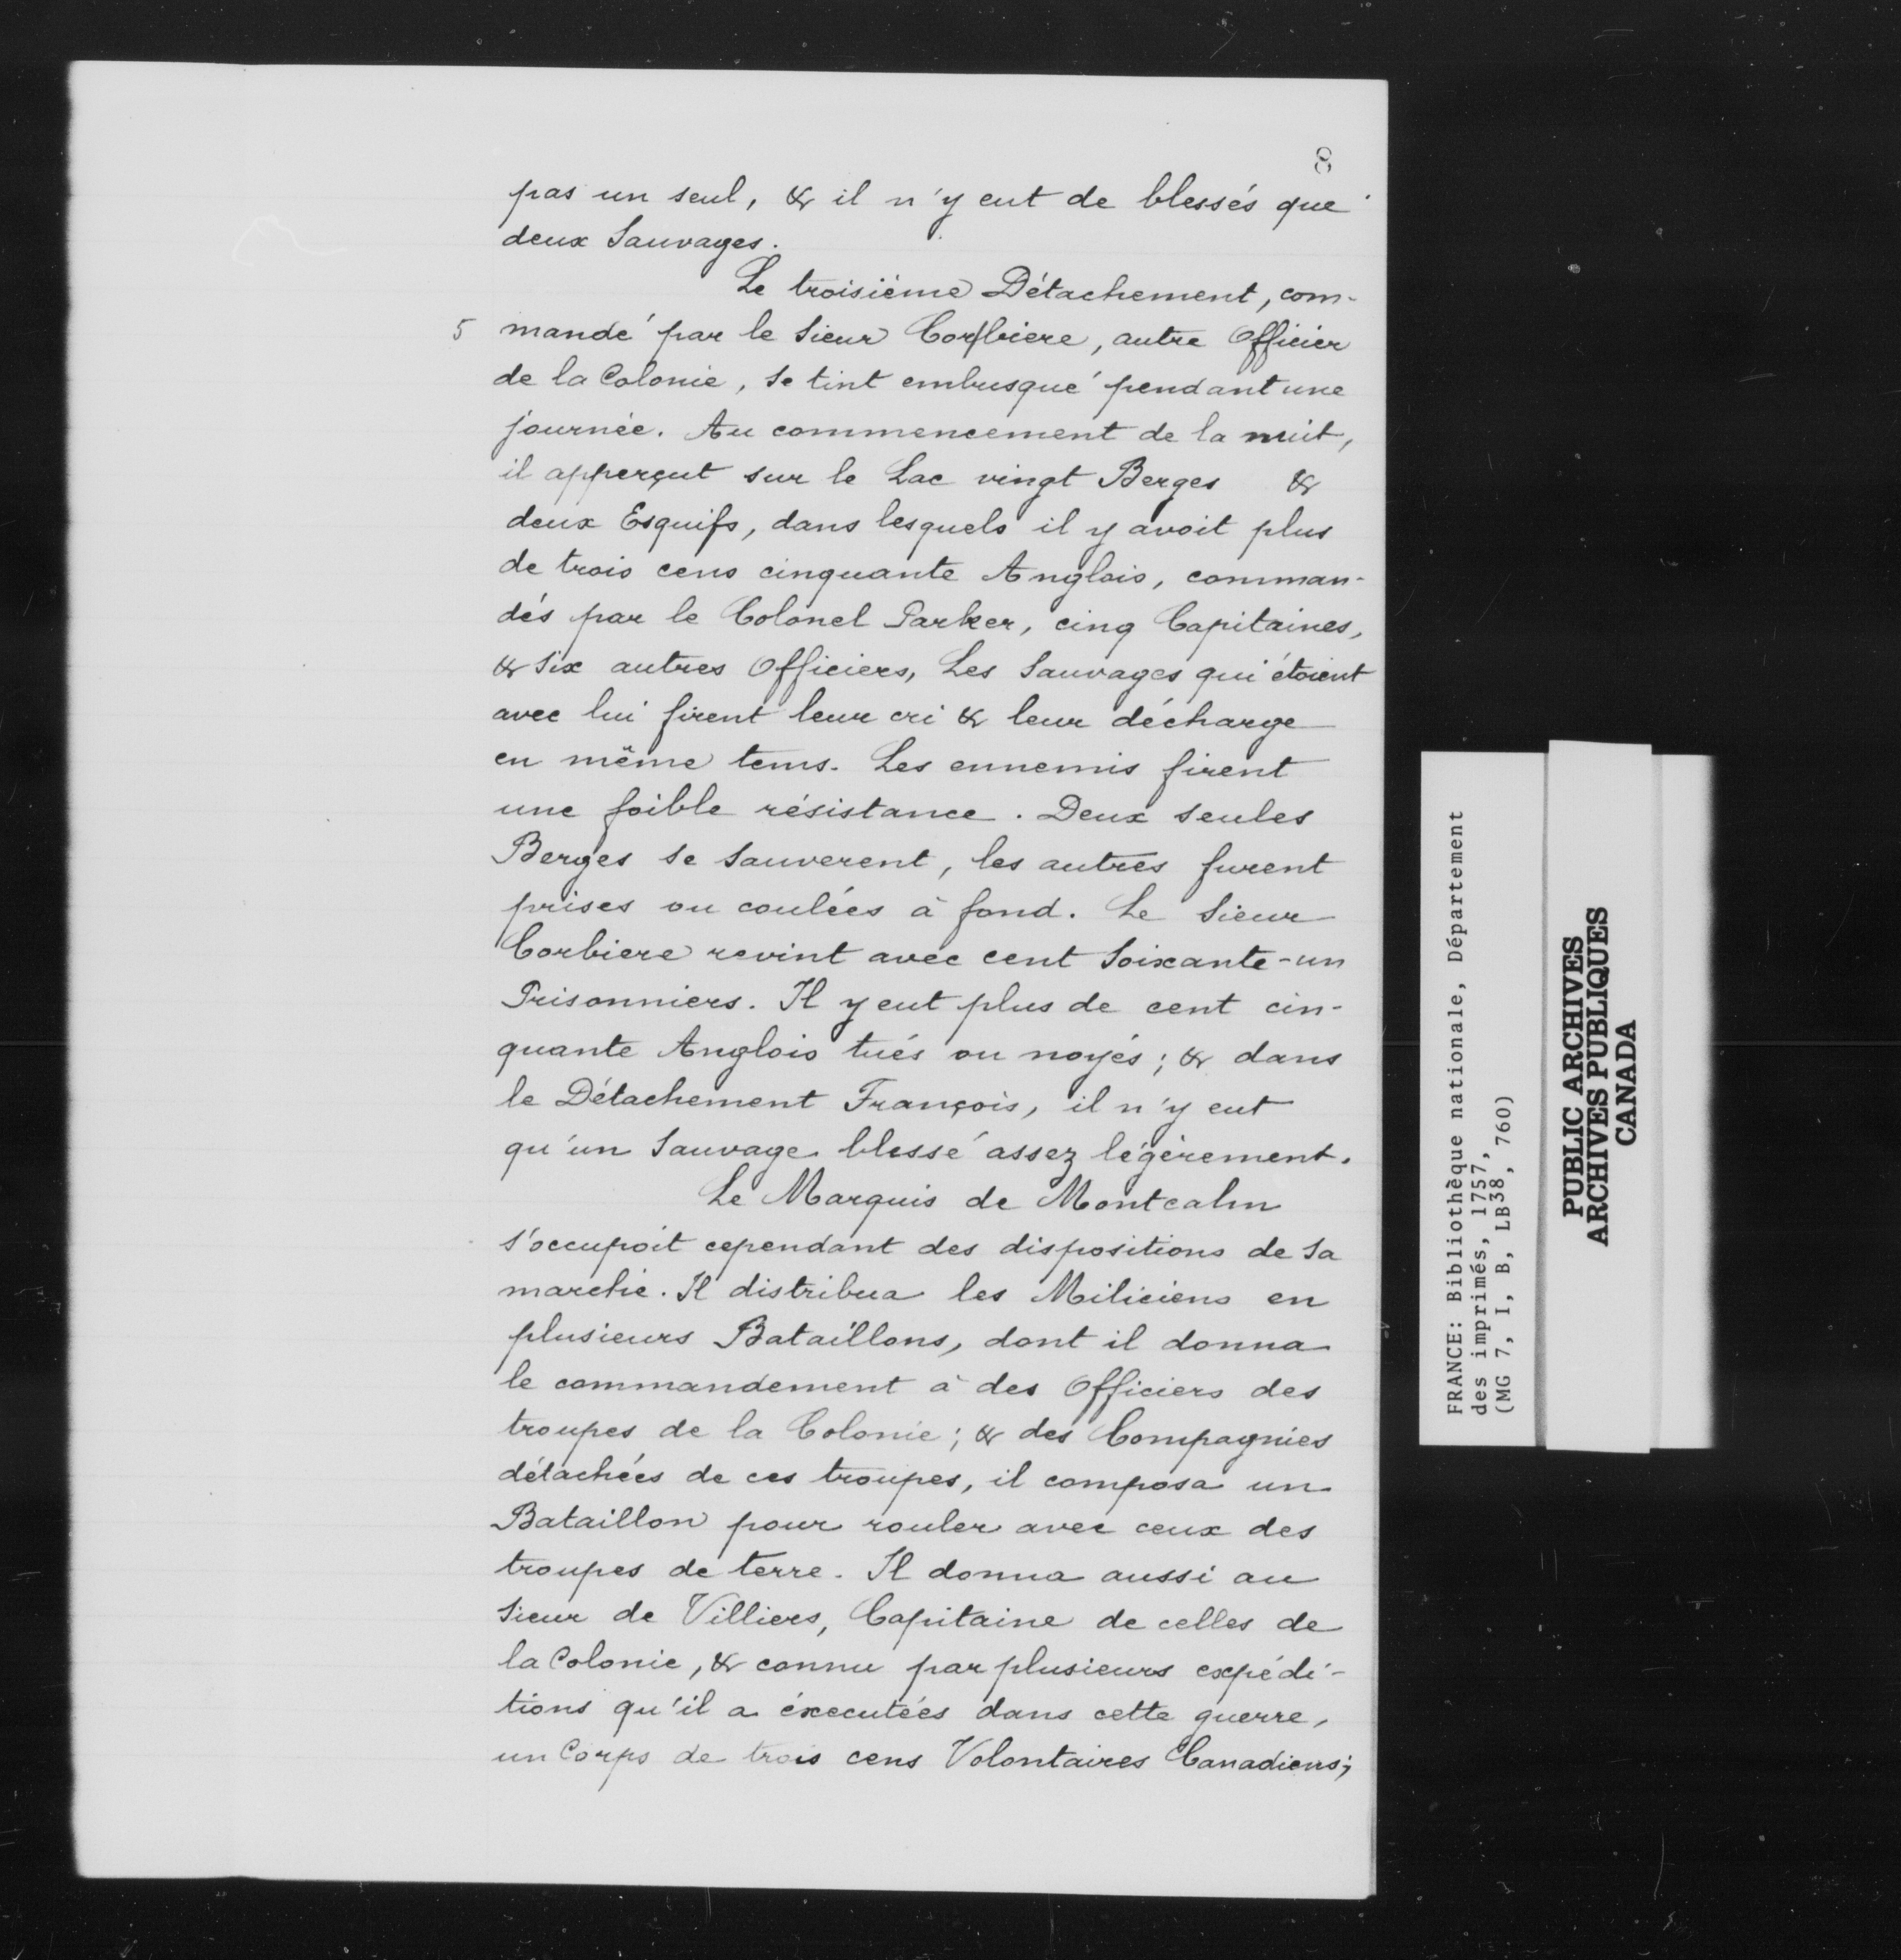 8
pas un seul, & il n'y eut de blessés que
deux Sauvages.
Le troisiéme Détachement, com-
5 mandé par le Sieur Corbiere, autre Officier
de la Colonie, se tint embusqué pendant une
journée. Au commencement de la nuit,
il apperçut sur le Lac vingt Berges &
deux Esquifs, dans lesquels il y avoit plus
de trois cens cinquante Anglois, comman-
dés par le Colonel Parker, cinq Capitaines,
& six autres Officiers, Les Sauvages qui étoient
avec lui firent leur cri & leur décharge
en même tems. Les ennemis firent
une foible résistance. Deux seules
Berges se sauverent, les autres furent
prises ou coulées à fond. Le Sieur
Corbiere revint avec cent soixante-un
Prisonniers. Il y eut plus de cent cin-
quante Anglois tués ou noyés; & dans
le Détachement François, il n'y eut
qu'un Sauvage blessé assez légèrement.
Le Marquis de Montcalm
s'occupoit cependant des dispositions de sa
marche. Il distribua les Miliciens en
plusieurs Bataillons, dont il donna
le commandement à des Officiers des
troupes de la Colonie; & des Compagnies
détachées de ces troupes, il composa un
Bataillon pour rouler avec ceux des
troupes de terre. Il donna aussi au
Sieur de Villiers, Capitaine de celles de
la Colonie, & connu par plusieurs expédi-
tions qu'il a éxecutées dans cette guerre,
un Corps de trois cens Volontaires Canadiens;
FRANCE: Bibliothèque nationale, Département
des imprimés, 1757,
(MG 7, I, B, LB38, 760)
PUBLIC ARCHIVES
ARCHIVES PUBLIQUES
CANADA